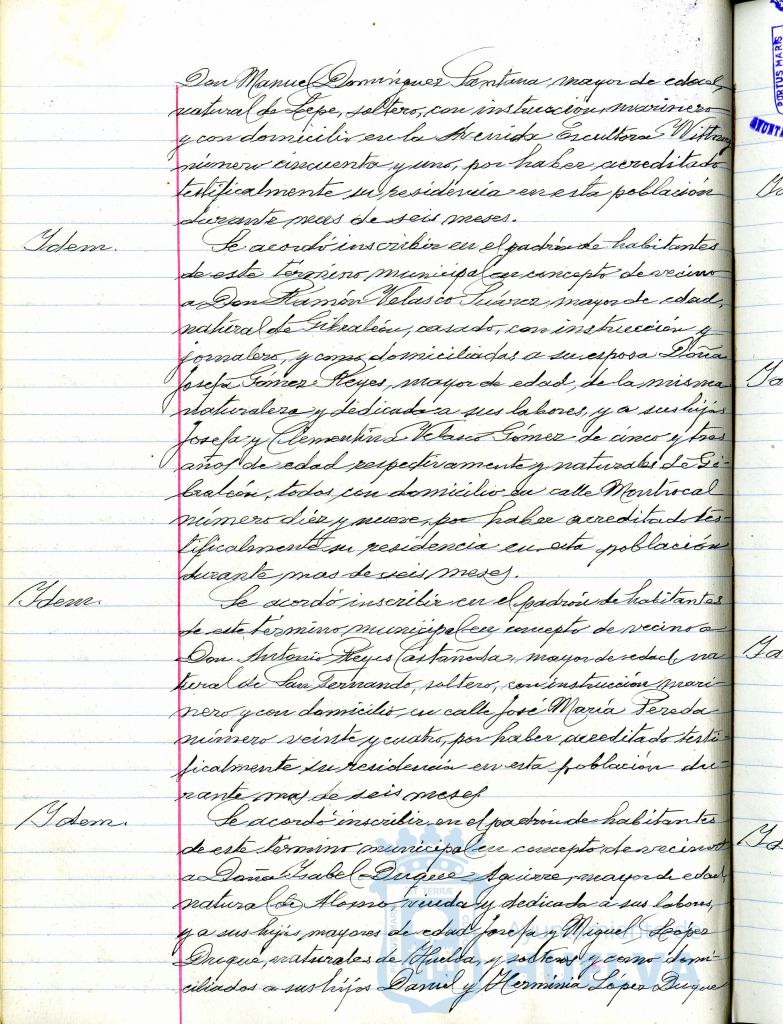 Don Manuel Domínguez Santana, mayor de edad,
natural de Lepe, soltero, con instrucción, marinero
y con domicilio en la Avenida Escultora Withney
número cincuenta y uno, por haber acreditado
testificalmente su residencia en esta población
durante mas de seis meses.
Idem. Se acordó inscribir en el padrón de habitantes
de este término municipal en concepto de vecino
a Don Ramón Velasco Suárez, mayor de edad,
natural de Gibraleón, casado, con instrucción y
jornalero, y como domiciliadas a su esposa Doña
Josefa Gómez Reyes, mayor de edad, de la misma
naturaleza y dedicada a sus labores, y a sus hijas
Josefa y Clementina Velasco Gómez de cinco y tres
años de edad respectivamente y naturales de Gi-
braleón, todos con domicilio en calle Montrocal
número diez y nueve, por haber acreditado tes-
tificalmente su residencia en esta población
durante mas de seis meses.
Idem. Se acordó inscribir en el padrón de habitantes
de este término municipal en concepto de vecino a
Don Antonio Reyes Castañeda, mayor de edad, na-
tural de San Fernando, soltero, con instrucción, mari-
nero, y con domicilio en calle José María Pereda
número veinte y cuatro, por haber acreditado testi-
ficalmente su residencia en esta población du-
rante mas de seis meses
Idem. Se acordó inscribir en el padrón de habitantes
de este término municipal en concepto de vecinos
a Doña Isabel Duque Aguirre, mayor de edad,
natural de Alosno, viuda y dedicada a sus labores,
y a sus hijos mayores de edad Josefa y Miguel López
Duque, naturales de Huelva, y solteros y como domi-
ciliados a sus hijos Daniel y Herminia López Duque
Ayuntamiento de
HUELVA
PORTUS MARIS